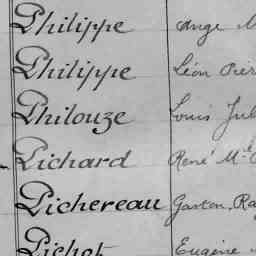 Philippe Ange
Philippe Léon
Philouze Louis
Pichard René M.
Pichereau Gaston, Ra
Pichot Eugène